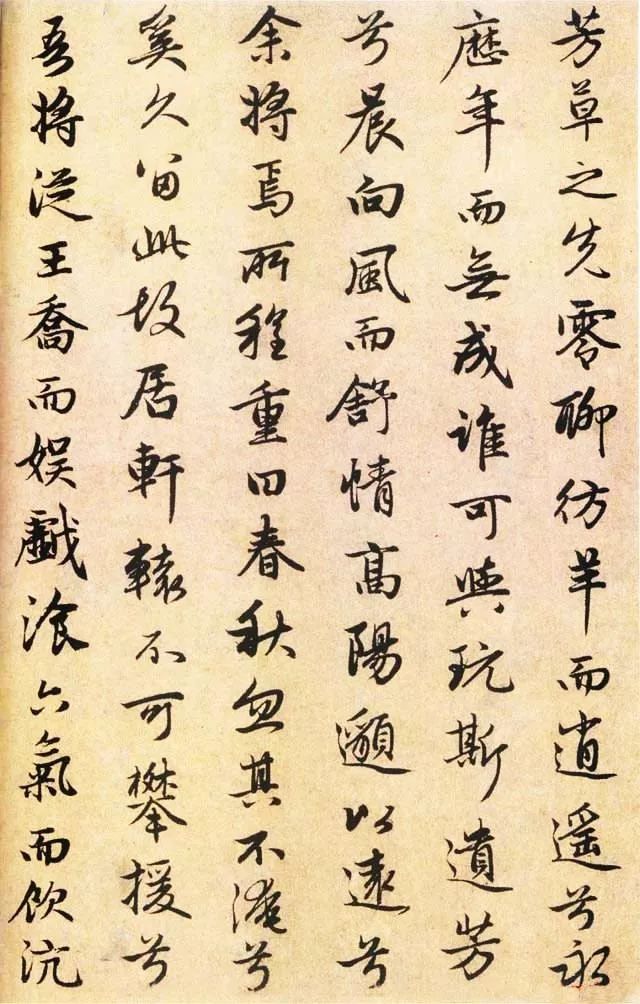 芳草之先零聊彷羊而逍遥兮永
歷年而無成誰可與玩斯遺芳
兮晨向風而舒情高陽邈以遠兮
余將焉所程重曰春秋忽其不淹兮
奚久留此故居軒轅不可攀援兮
吾將從王喬而娛戲飡六氣而飲沆